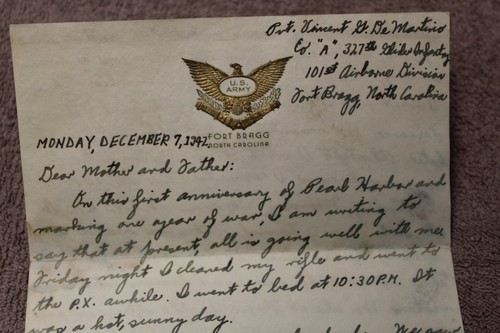 Pvt. Vincent G. De Martino
Co. "A", 327th Glider Infantry
101st Airborne Division
Fort Bragg, North Carolina
U.S.
ARMY
FORT BRAGG
NORTH CAROLINA
MONDAY, DECEMBER 7, 1942,
Dear Mother and Father:
On this first anniversary of Pearl Harbor and
marking one year of war, I am writing to
say that at present, all is going well with me.
Friday night I cleaned my rifle and went to
the P.X. awhile. I went to bed at 10:30 P.M. It
was a hot, sunny day.